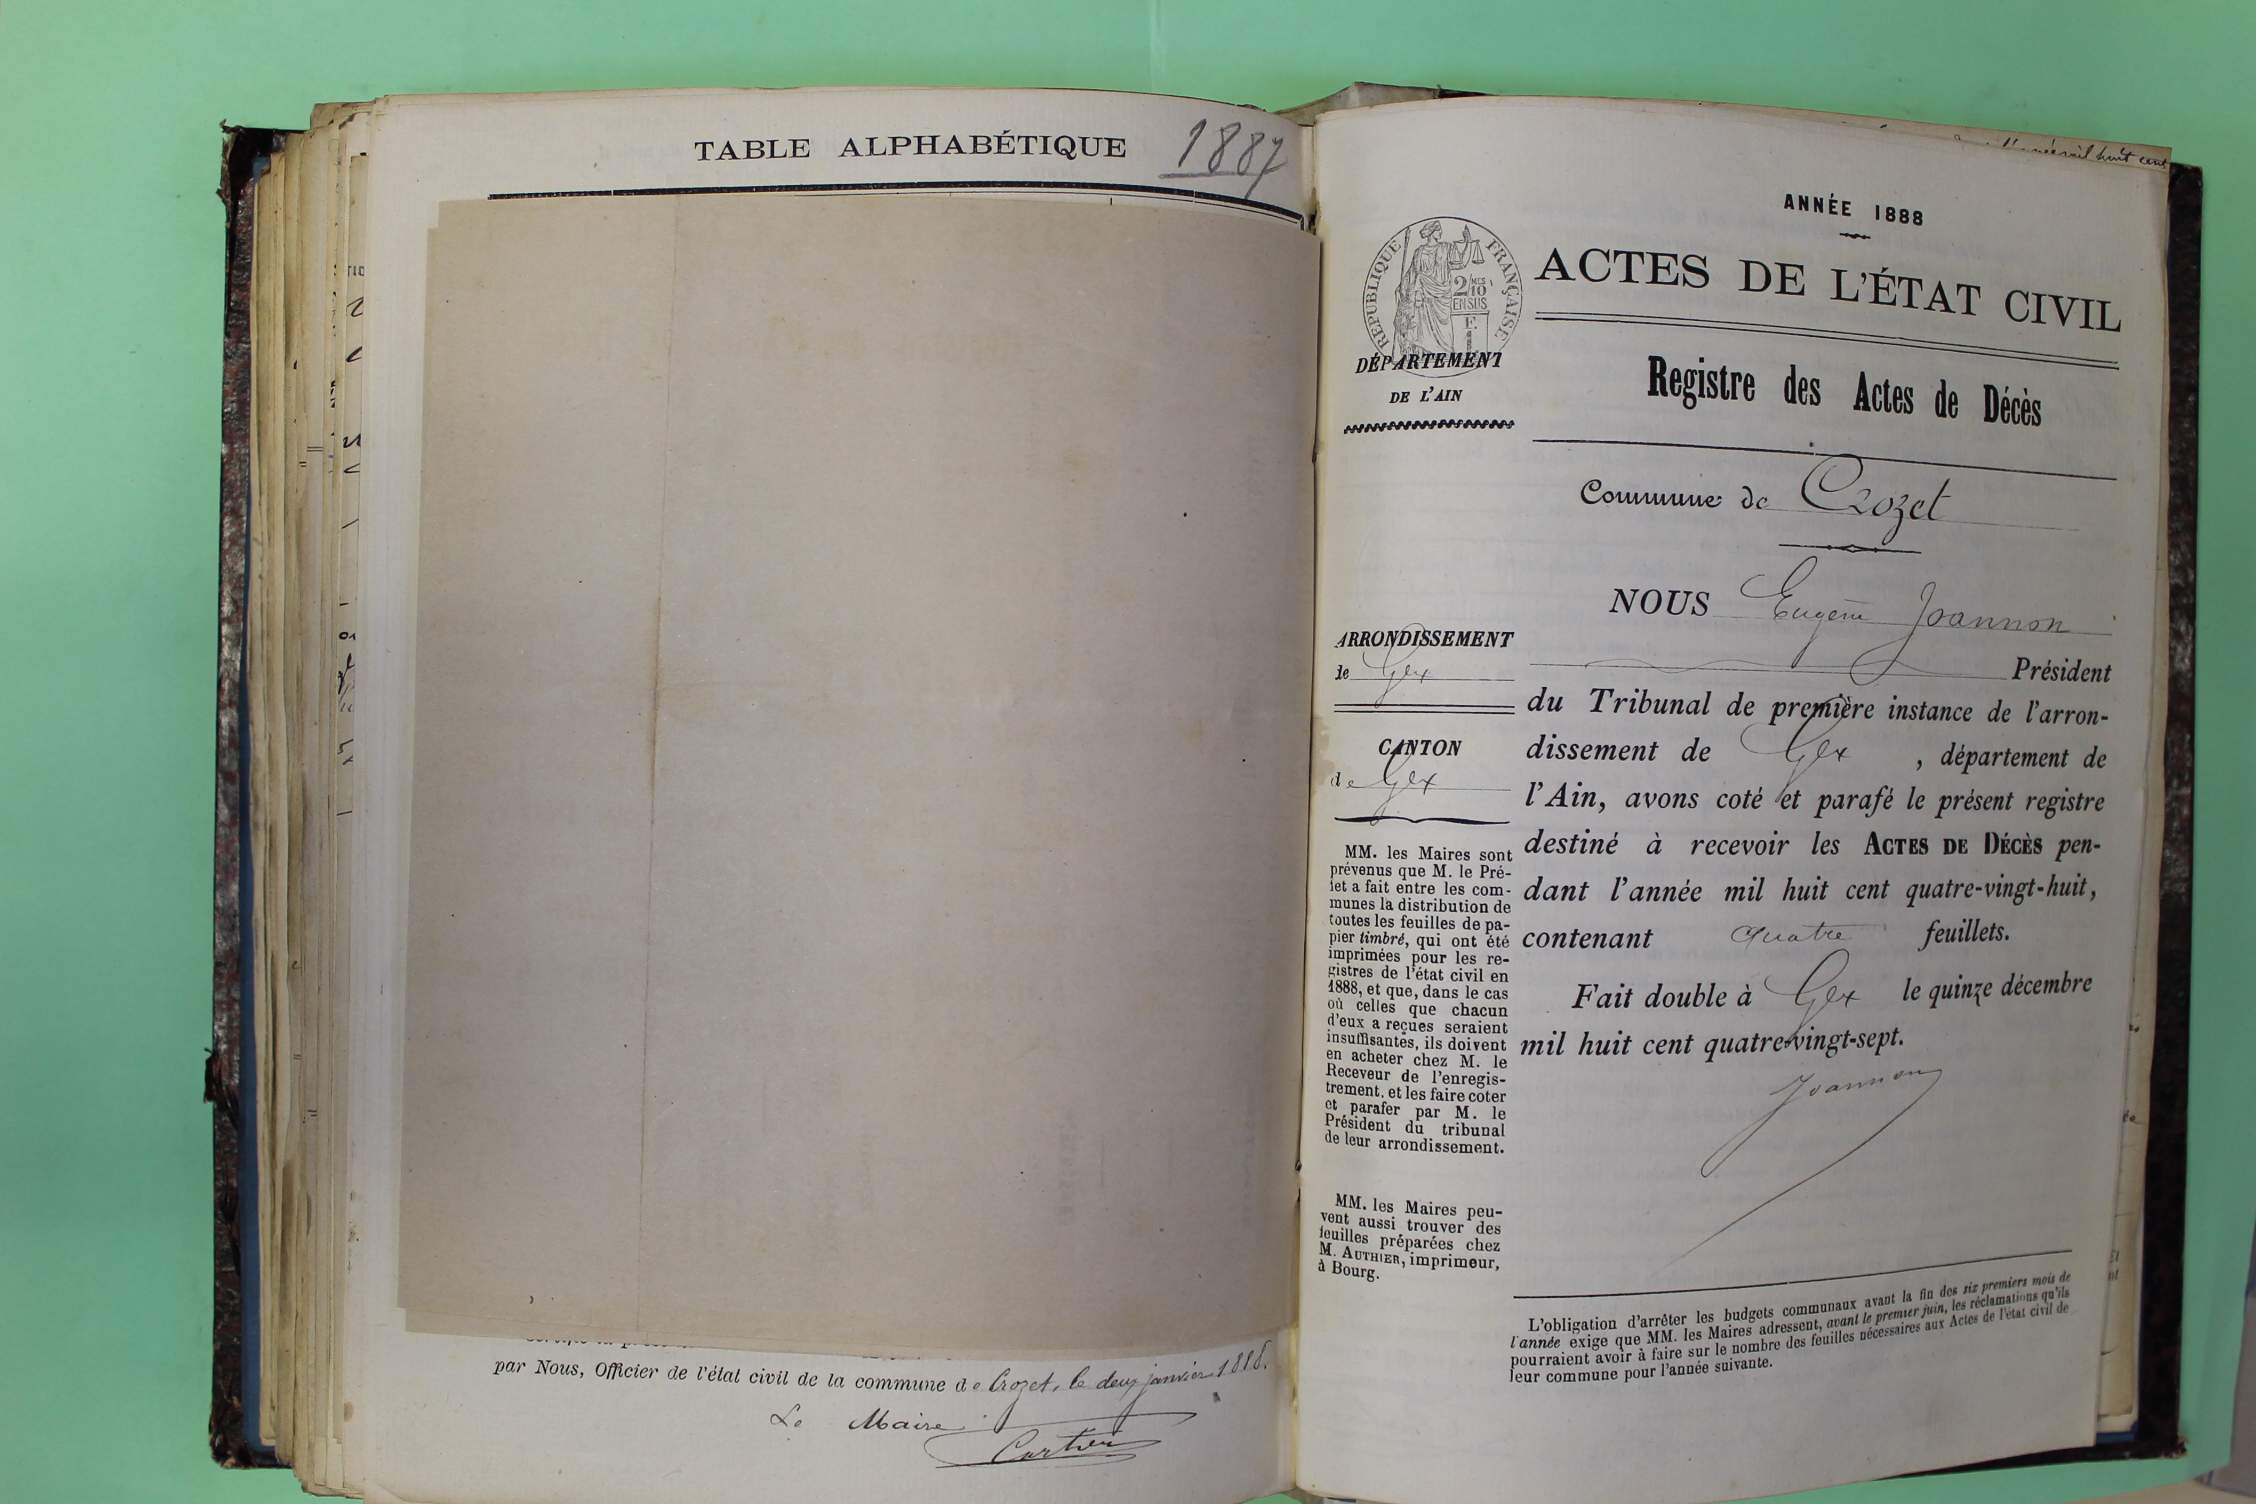 TABLE ALPHABÉTIQUE 1887
par Nous, Officier de l'état civil de la commune de Crozet, le deux janvier 1888.
Le Maire
l'année mil huit cent
ANNÉE 1888
ACTES DE L'ÉTAT CIVIL
RÉPUBLIQUE FRANÇAISE
2/10
MES
EN SUS
F.
1
DÉPARTEMENT
DE L'AIN
Registre des Actes de Décès
Commune de Crozet
ARRONDISSEMENT
de Gex
CANTON
de Gex
MM. les Maires sont
prévenus que M. le Pré-
fet a fait entre les com-
munes la distribution de
toutes les feuilles de pa-
pier timbré, qui ont été
imprimées pour les re-
gistres de l'état civil en
1888, et que, dans le cas
où celles que chacun
d'eux a reçues seraient
insuffisantes, ils doivent
en acheter chez M. le
Receveur de l'enregis-
trement, et les faire coter
et parafer par M. le
Président du tribunal
de leur arrondissement.
MM. les Maires peu-
vent aussi trouver des
feuilles préparées chez
M. AUTHIER, imprimeur,
à Bourg.
NOUS Eugène Joannon
Président
du Tribunal de première instance de l'arron-
dissement de Gex, département de
l'Ain, avons coté et parafé le présent registre
destiné à recevoir les ACTES DE DÉCÈS pen-
dant l'année mil huit cent quatre-vingt-huit,
contenant quatre feuillets.
Fait double à Gex le quinze décembre
mil huit cent quatre-vingt-sept.
Joannon
L'obligation d'arrêter les budgets communaux avant la fin des six premiers mois de
l'année exige que MM. les Maires adressent, avant le premier juin, les réclamations qu'ils
pourraient avoir à faire sur le nombre des feuilles nécessaires aux Actes de l'état civil de
leur commune pour l'année suivante.